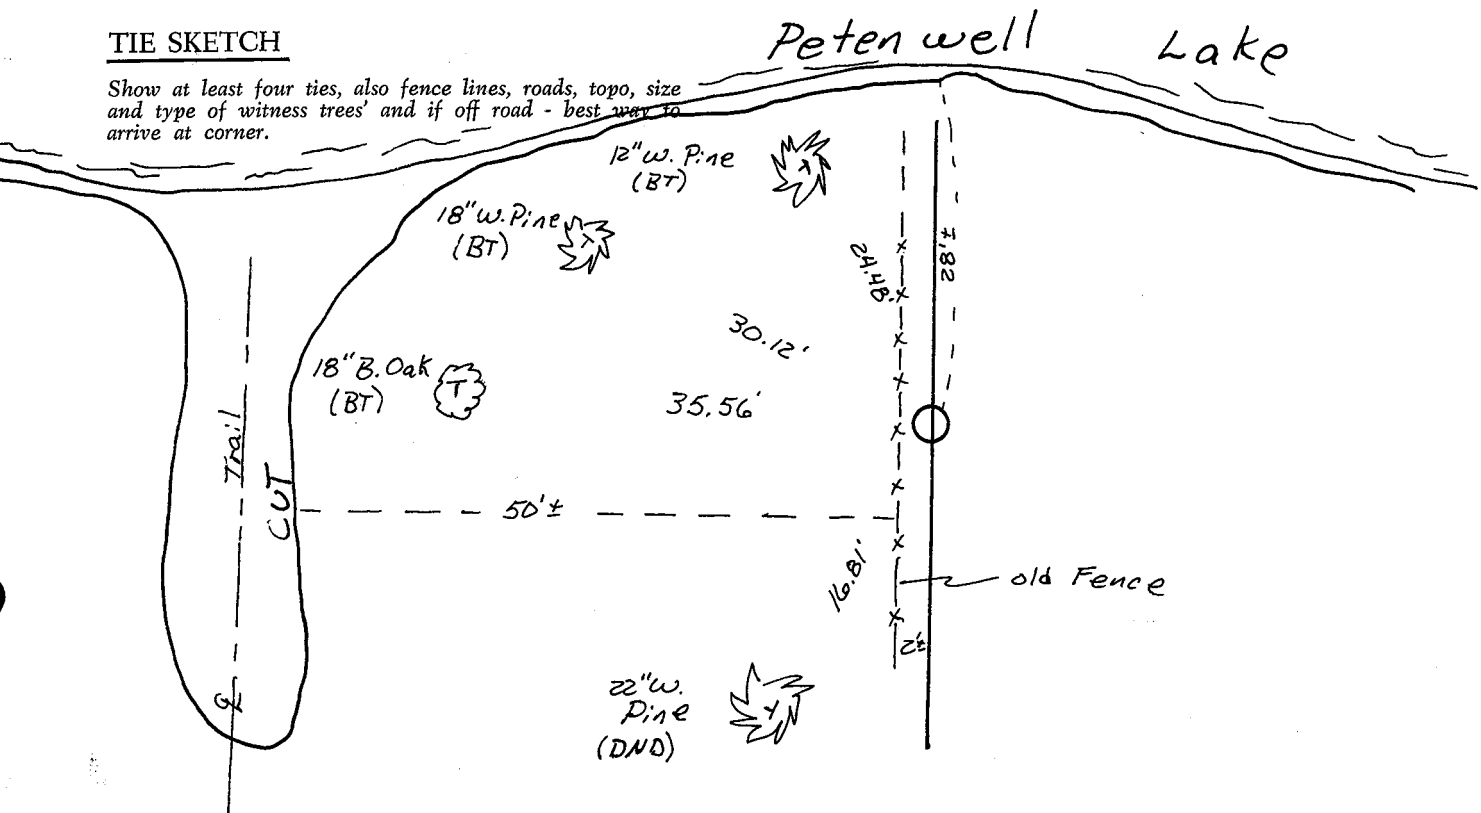 TIE SKETCH
Show at least four ties, also fence lines, roads, topo, size
and type of witness trees' and if off road - best way to
arrive at corner.
Petenwell Lake
12" W. Pine
(BT)
18" W. Pine
(BT)
18" B. Oak
(BT)
T
Trail
CUT
24.48'
30.12'
35.56'
50'±
16.81'
old Fence
2'±
22" W.
Pine
(DND)